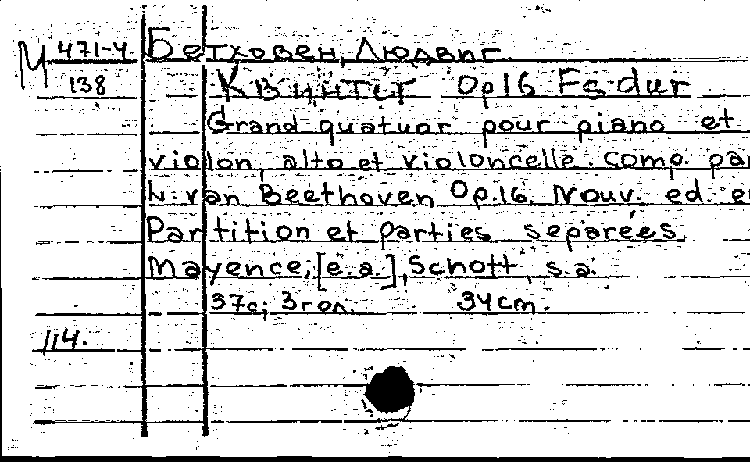 М 471-4 Бетховен, Людвиг
138 Квинтет Op16 Es-dur
Grand quatuor pour piano et
violon, alto et violoncelle. comp. par
L. van Beethoven Op.16. Nouv. ed. en
Partition et parties separées.
Mayence, [e.a.], Schott, s.a.
37с; 3 гол. 34cm.
114.